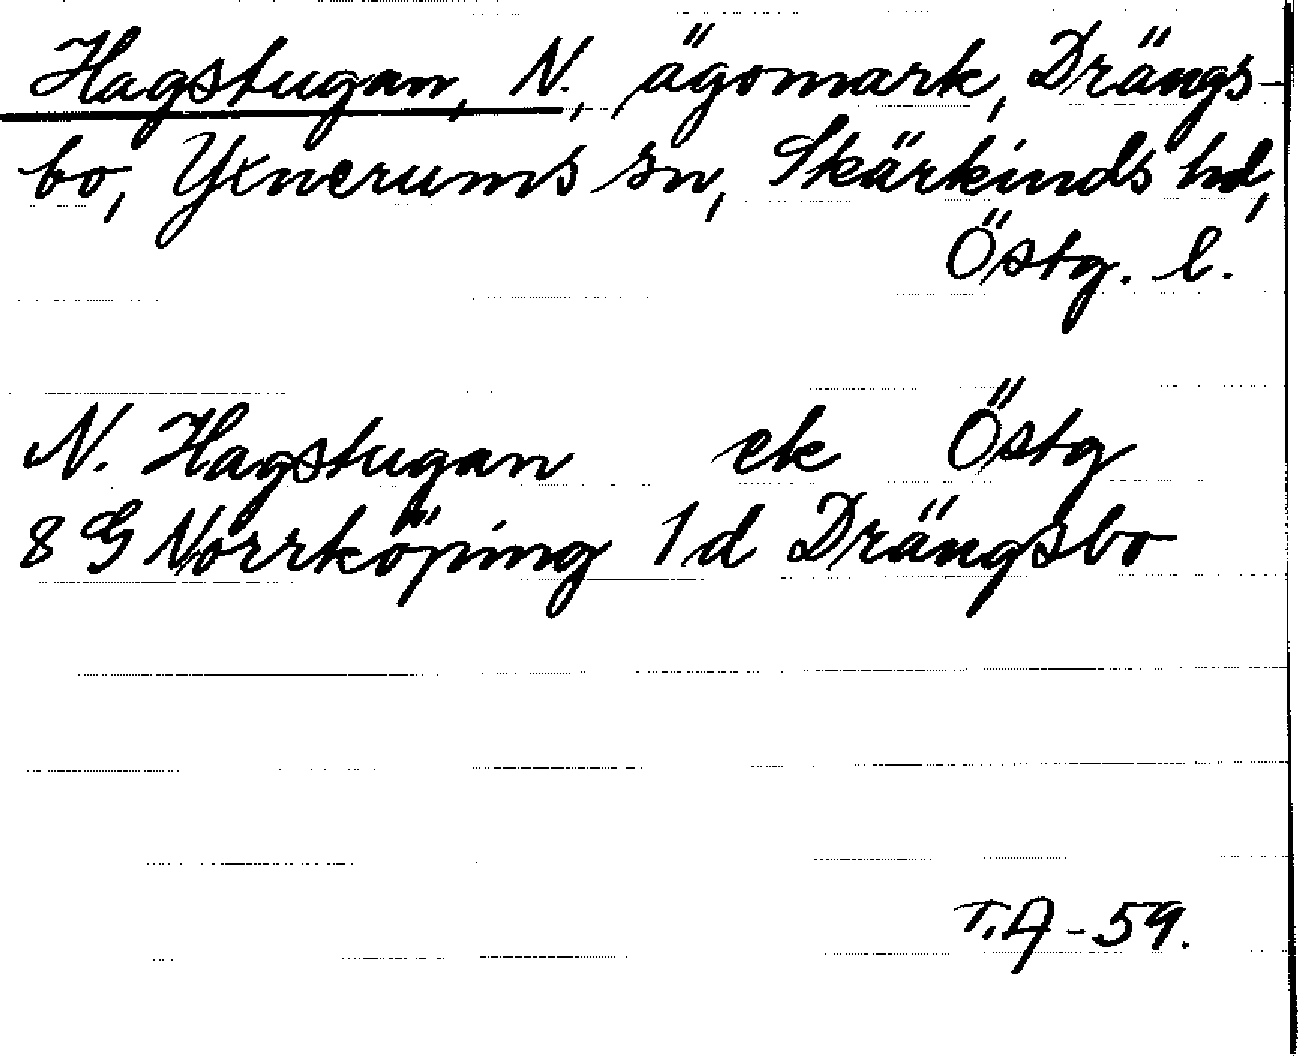 Hagstugan, N., ägomark, Drängs-
bo, Yxnerums sn, Skärkinds hd,
Östg. l.
N. Hagstugan ek Östg
8 G Norrköping 1 d Drängsbo
T.A - 59.